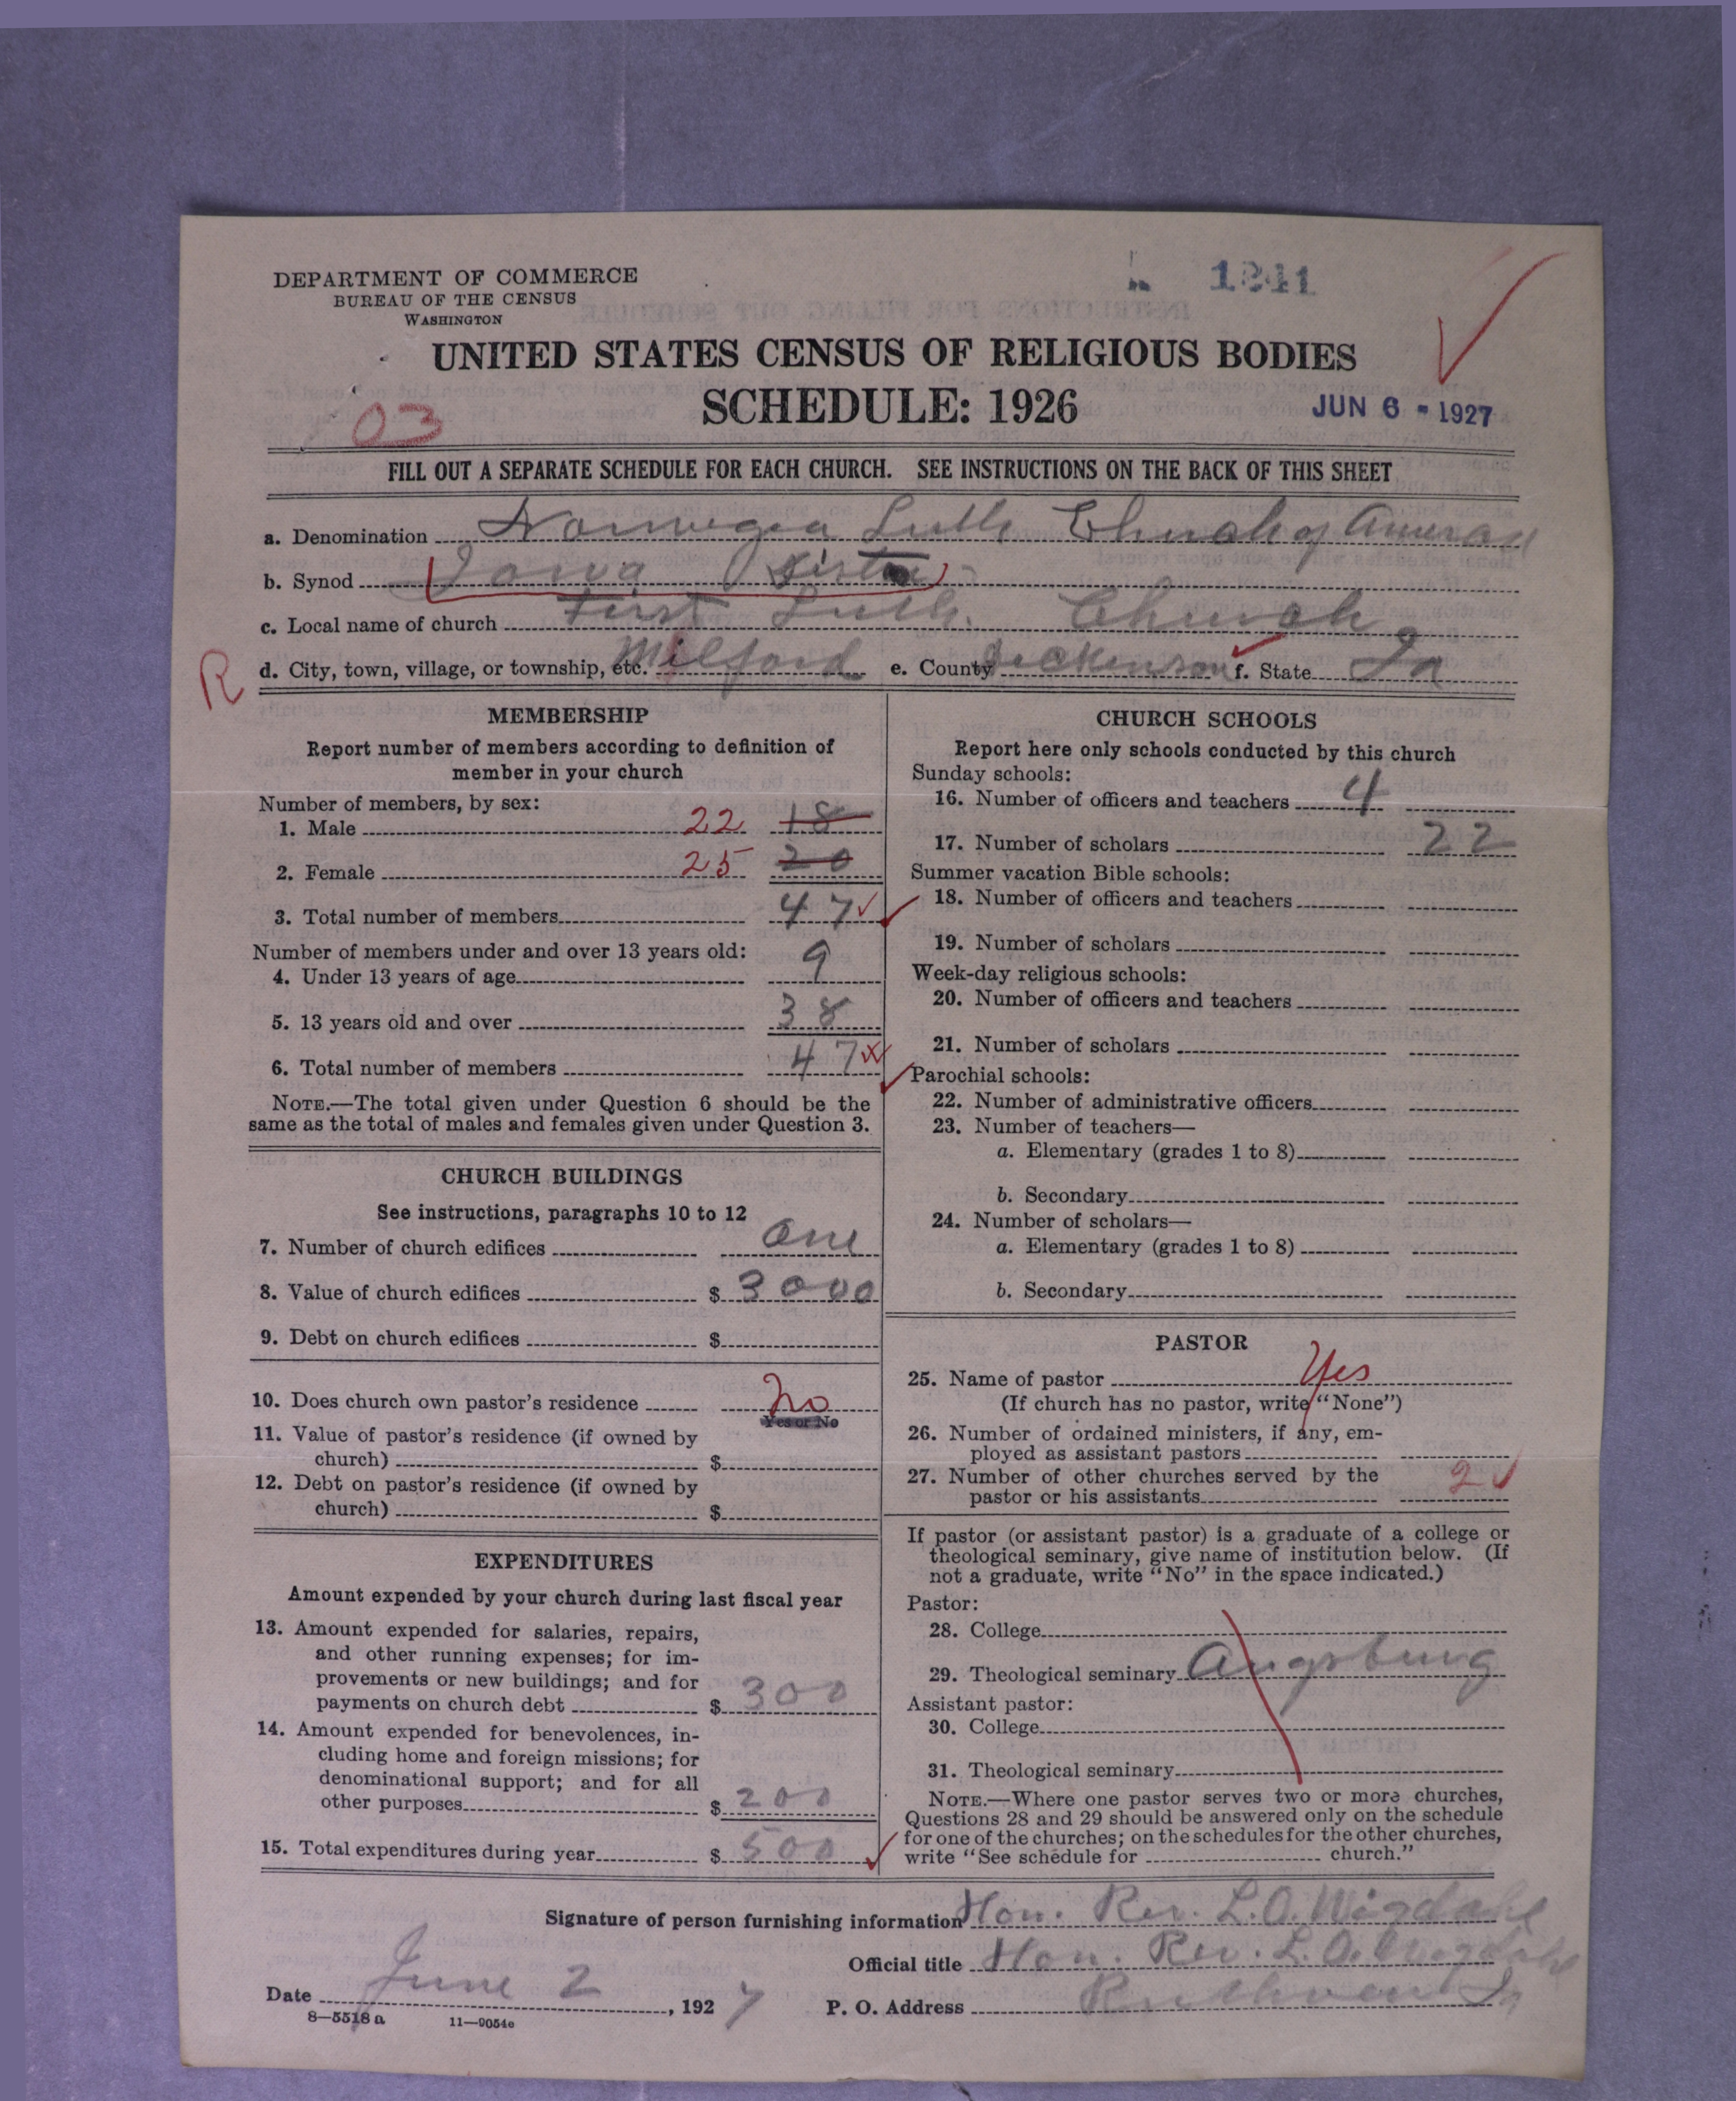 1241
DEPARTMENT OF COMMERCE
BUREAU OF THE CENSUS
WASHINGTON
UNITED STATES CENSUS OF RELIGIOUS BODIES
SCHEDULE: 1926
JUN 6 - 1927
03
FILL OUT A SEPARATE SCHEDULE FOR EACH CHURCH. SEE INSTRUCTIONS ON THE BACK OF THIS SHEET
a. Denomination Norwegia Luth Church of
b. Synod Iowa
c. Local name of church First Luth. Church
R
d. City, town, village, or township, etc. Milford e. County Dickenson f. State Ia
MEMBERSHIP
Report number of members according to definition of
member in your church
Number of members, by sex:
1. Male 22 18
2. Female 25 20
3. Total number of members 47
Number of members under and over 13 years old:
4. Under 13 years of age 9
5. 13 years old and over 38
6. Total number of members 47
NOTE.—The total given under Question 6 should be the
same as the total of males and females given under Question 3.
CHURCH BUILDINGS
See instructions, paragraphs 10 to 12
7. Number of church edifices One
8. Value of church edifices $ 3000
9. Debt on church edifices $
10. Does church own pastor's residence No
Yes or No
11. Value of pastor's residence (if owned by
church) $
12. Debt on pastor's residence (if owned by
church) $
EXPENDITURES
Amount expended by your church during last fiscal year
13. Amount expended for salaries, repairs,
and other running expenses; for im-
provements or new buildings; and for
payments on church debt $ 300
14. Amount expended for benevolences, in-
cluding home and foreign missions; for
denominational support; and for all
other purposes $ 200
15. Total expenditures during year $ 500
CHURCH SCHOOLS
Report here only schools conducted by this church
Sunday schools:
16. Number of officers and teachers 4
17. Number of scholars 22
Summer vacation Bible schools:
18. Number of officers and teachers
19. Number of scholars
Week-day religious schools:
20. Number of officers and teachers
21. Number of scholars
Parochial schools:
22. Number of administrative officers
23. Number of teachers—
a. Elementary (grades 1 to 8)
b. Secondary
24. Number of scholars—
a. Elementary (grades 1 to 8)
b. Secondary
PASTOR
25. Name of pastor Yes
(If church has no pastor, write "None")
26. Number of ordained ministers, if any, em-
ployed as assistant pastors
27. Number of other churches served by the
pastor or his assistants 2
If pastor (or assistant pastor) is a graduate of a college or
theological seminary, give name of institution below. (If
not a graduate, write "No" in the space indicated.)
Pastor:
28. College
29. Theological seminary Augsburg
Assistant pastor:
30. College
31. Theological seminary
NOTE.—Where one pastor serves two or more churches,
Questions 28 and 29 should be answered only on the schedule
for one of the churches; on the schedules for the other churches,
write "See schedule for church."
Signature of person furnishing information Hon. Rev. L.O. Wigdahl
Official title Hon. Rev. L. O. Wigdahl
Date June 2, 1927 P. O. Address Ruthven Ia
8—5518 a 11—9054c